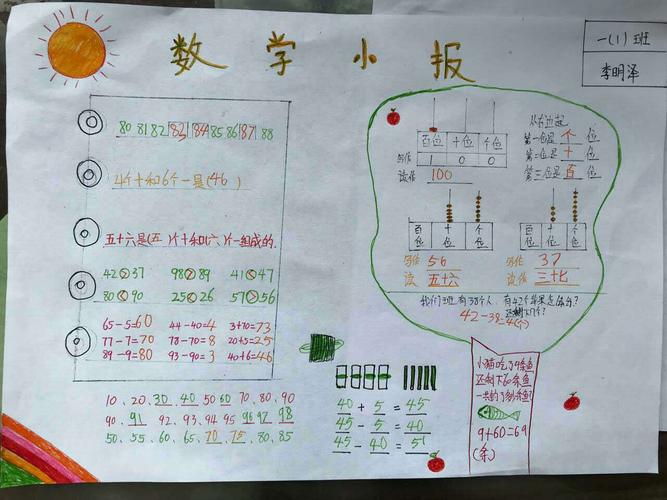 数学小报
一(1)班
李明泽
80 81 82 83 84 85 86 87 88
4个十和6个一是(46)
五十六是(五)个十和(六)个一组成的.
42>37 98>89 41<47
80<90 25<26 57>56
65-5=60 44-40=4 3+70=73
77-7=70 78-70=8 20+5=25
89-9=80 93-90=3 40+6=46
10、20、30、40 50 60、70、80、90
90、91、92、93、94、95 96 97、98
50、55、60、65、70、75、80、85
百位 十位 个位
写作 1 0 0
读作 100
从右边起
第一位是 个 位
第二位是 十 位
第三位是 百 位
百位 十位 个位
写作 56
读 五十六
百位 十位 个位
写作 37
读作 三十七
我们班有38个人，有42个苹果
42-38=4(个)
40+5=45
45-5=40
45-40=5
小猫吃了9条鱼
还剩下60条鱼
9+60=69
(条)